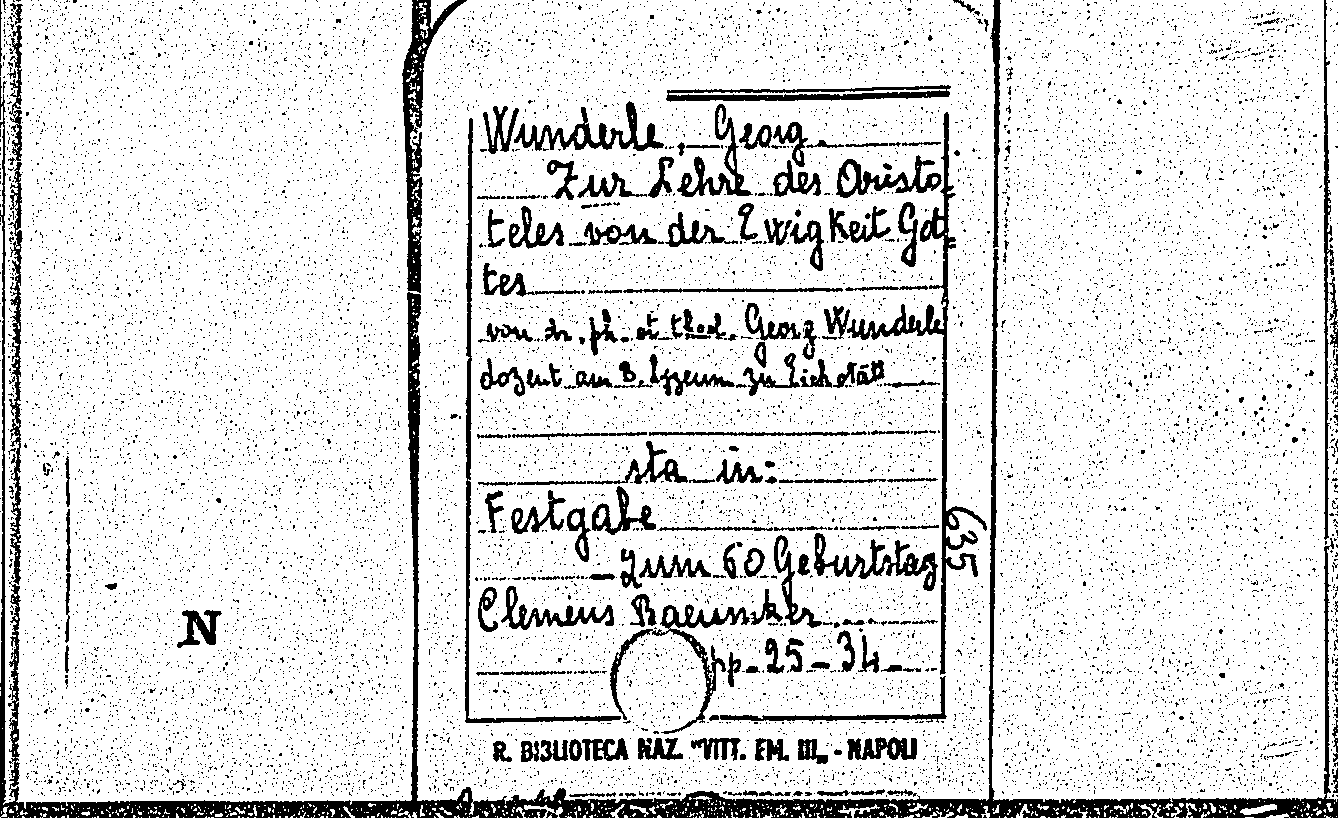 Wunderle, Georg.
Zur Lehre des Aristo=
teles von der Ewigkeit Got=
tes
von Dr. ph. et theol. Georg Wunderle
dozent am B. Lyzeum zu Eichstätt
sta in:
Festgabe
zum 60 Geburtstag
Clemens Baeumker....
pp. 25-34-
635
N
R. BIBLIOTECA NAZ. "VITT. EM. III„ - NAPOLI